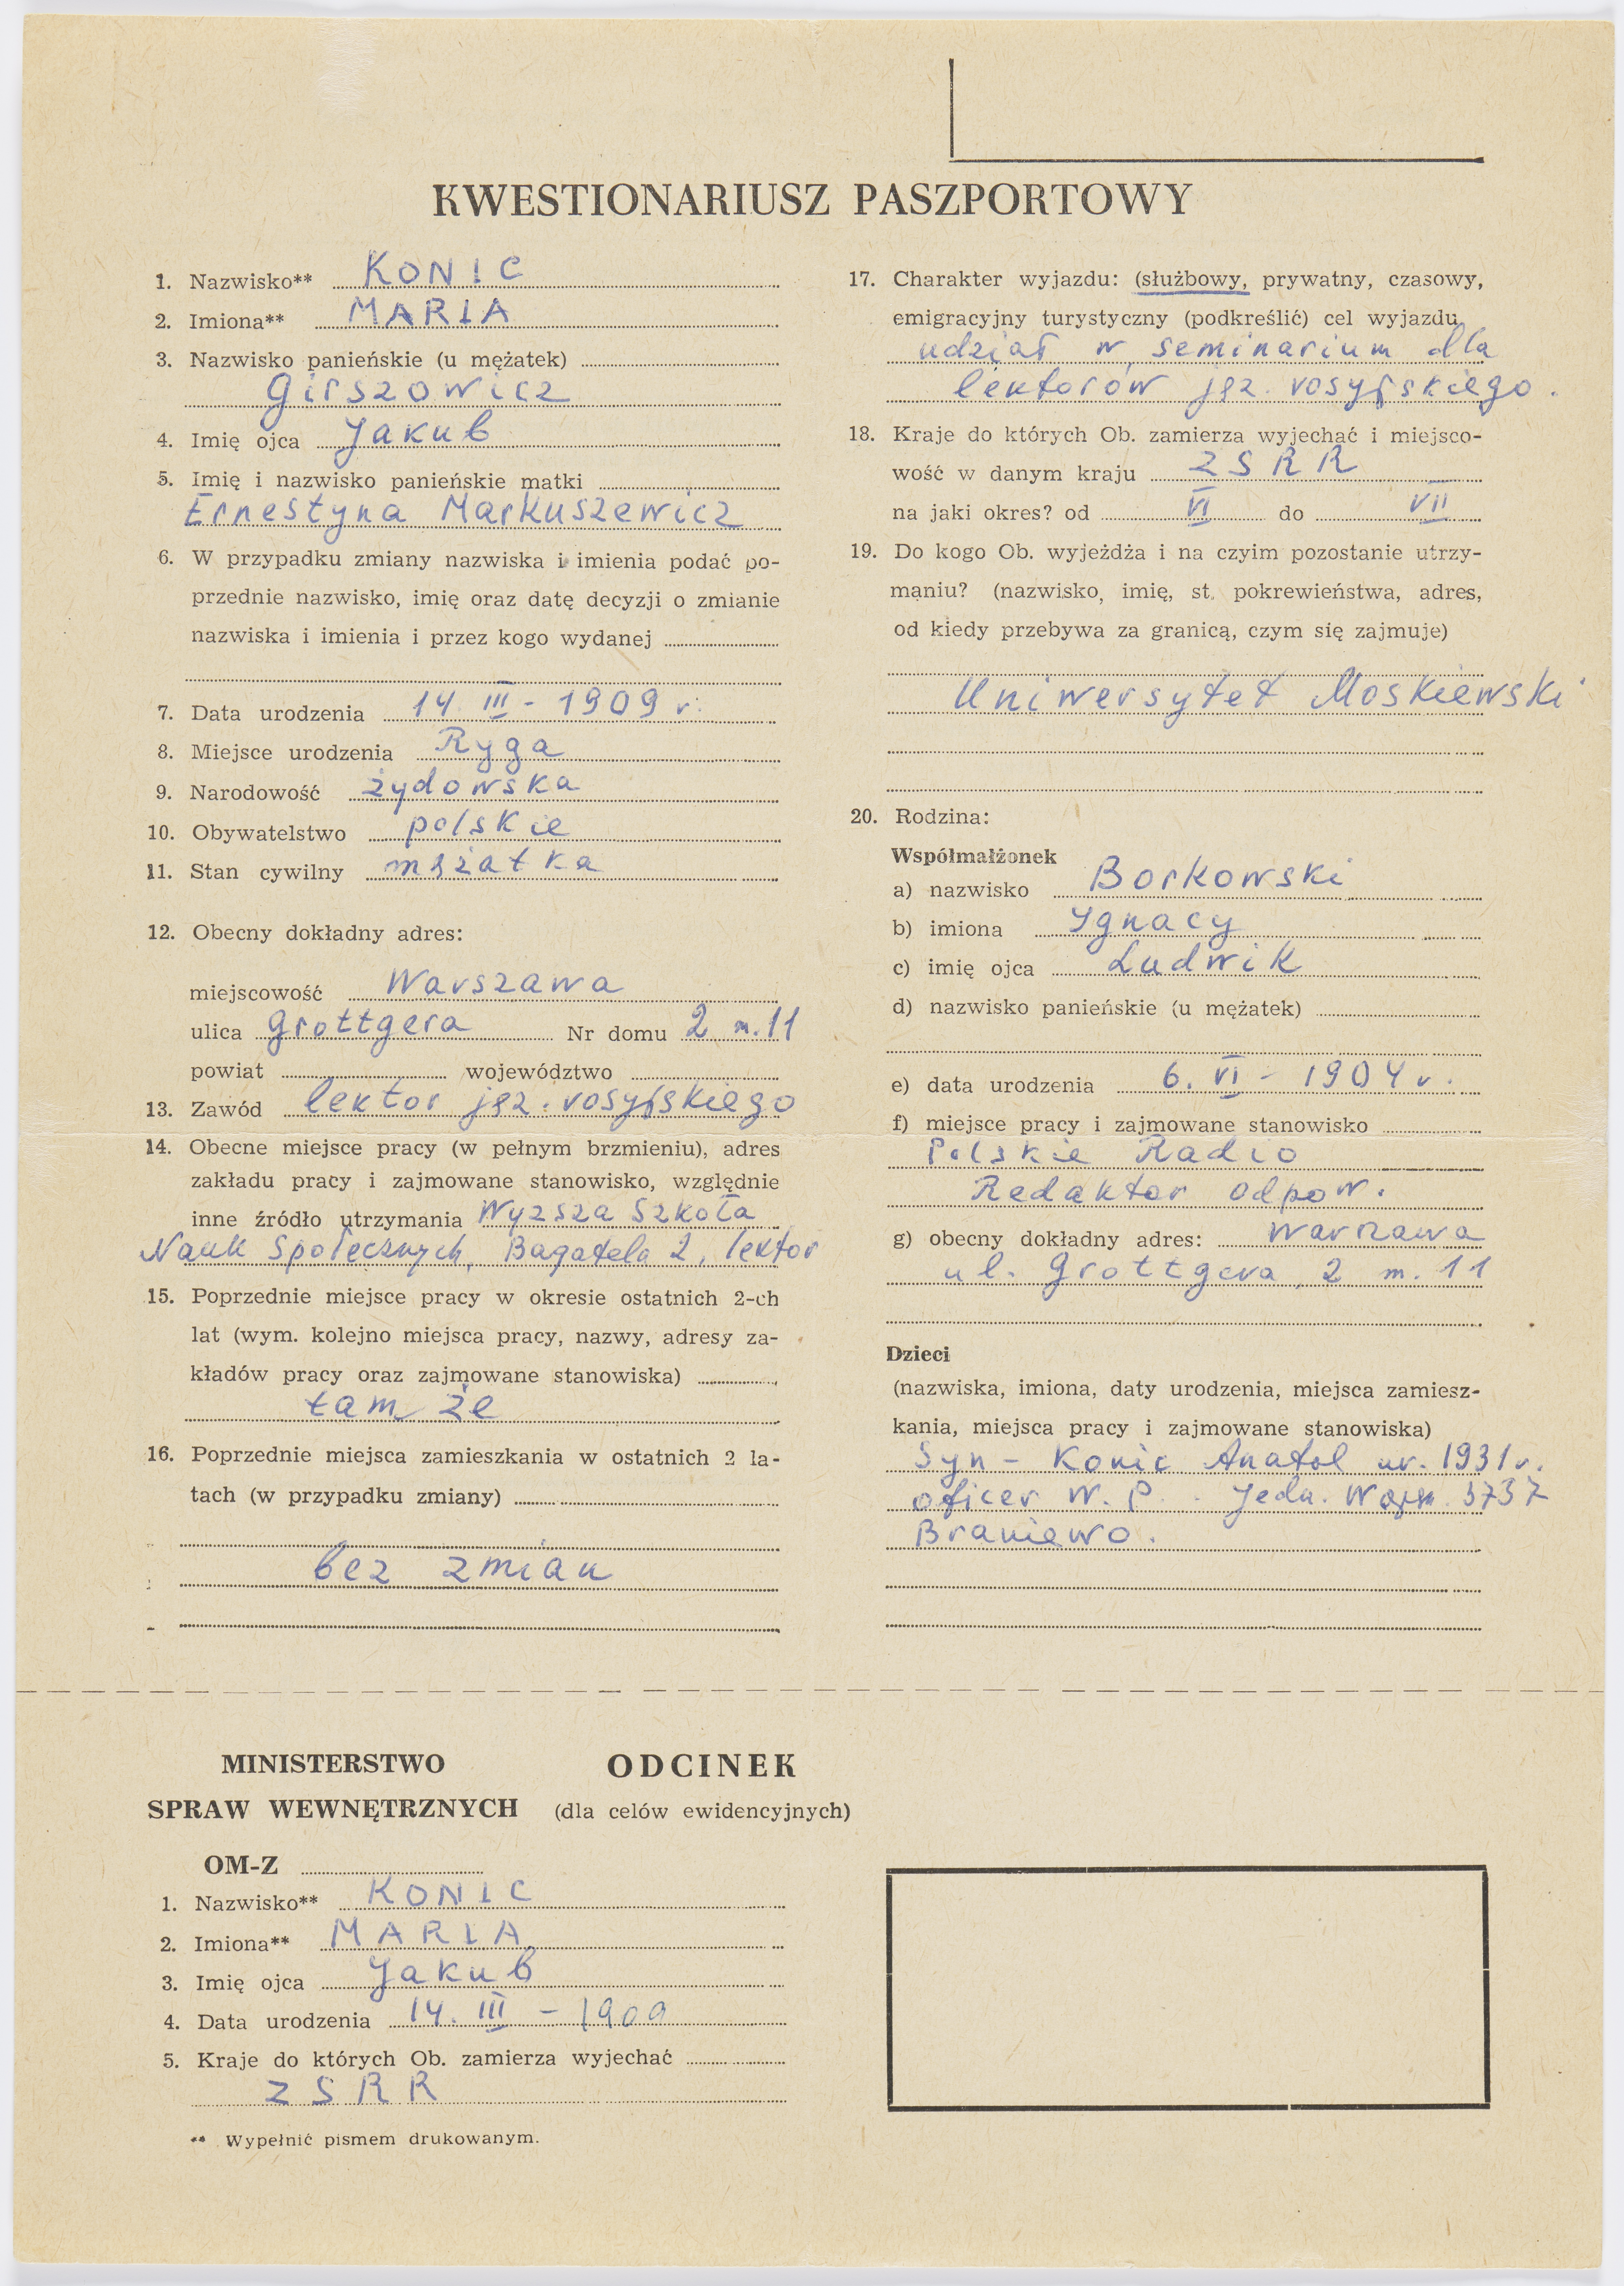 KWESTIONARIUSZ PASZPORTOWY
1. Nazwisko** KONIC
2. Imiona** MARIA
3. Nazwisko panieńskie (u mężatek)
Girszowicz
4. Imię ojca Jakub
5. Imię i nazwisko panieńskie matki
Ernestyna Markuszewicz
6. W przypadku zmiany nazwiska i imienia podać po-
przednie nazwisko, imię oraz datę decyzji o zmianie
nazwiska i imienia i przez kogo wydanej
7. Data urodzenia 14 III - 1909 r.
8. Miejsce urodzenia Ryga
9. Narodowość żydowska
10. Obywatelstwo polskie
11. Stan cywilny mężatka
12. Obecny dokładny adres:
miejscowość Warszawa
ulica Grottgera Nr domu 2 m. 11
powiat województwo
13. Zawód lektor jęz. rosyjskiego
14. Obecne miejsce pracy (w pełnym brzmieniu), adres
zakładu pracy i zajmowane stanowisko, względnie
inne źródło utrzymania Wyższa Szkoła
Nauk Społecznych, Bagatela 2, lektor
15. Poprzednie miejsce pracy w okresie ostatnich 2-ch
lat (wym. kolejno miejsca pracy, nazwy, adresy za-
kładów pracy oraz zajmowane stanowiska)
tam że
16. Poprzednie miejsca zamieszkania w ostatnich 2 la-
tach (w przypadku zmiany)
bez zmian
17. Charakter wyjazdu: (służbowy, prywatny, czasowy,
emigracyjny turystyczny (podkreślić) cel wyjazdu
udział w seminarium dla
lektorów jęz. rosyjskiego.
18. Kraje do których Ob. zamierza wyjechać i miejsco-
wość w danym kraju ZSRR
na jaki okres? od VI do VII
19. Do kogo Ob. wyjeżdża i na czyim pozostanie utrzy-
maniu? (nazwisko, imię, st. pokrewieństwa, adres,
od kiedy przebywa za granicą, czym się zajmuje)
Uniwersytet Moskiewski
20. Rodzina:
Współmałżonek
a) nazwisko Borkowski
b) imiona Ignacy
c) imię ojca Ludwik
d) nazwisko panieńskie (u mężatek)
e) data urodzenia 6. VI - 1904 r.
f) miejsce pracy i zajmowane stanowisko
Polskie Radio
Redaktor odpow.
g) obecny dokładny adres: Warszawa
ul. Grottgera 2 m. 11
Dzieci
(nazwiska, imiona, daty urodzenia, miejsca zamiesz-
kania, miejsca pracy i zajmowane stanowiska)
Syn - Konic Anatol ur. 1931 r.
oficer W. P. Jedn. Wojsk. 3737
Braniewo.
MINISTERSTWO
SPRAW WEWNĘTRZNYCH
ODCINEK
(dla celów ewidencyjnych)
OM-Z
1. Nazwisko** KONIC
2. Imiona** MARIA
3. Imię ojca Jakub
4. Data urodzenia 14. III - 1909
5. Kraje do których Ob. zamierza wyjechać
ZSRR
** Wypełnić pismem drukowanym.